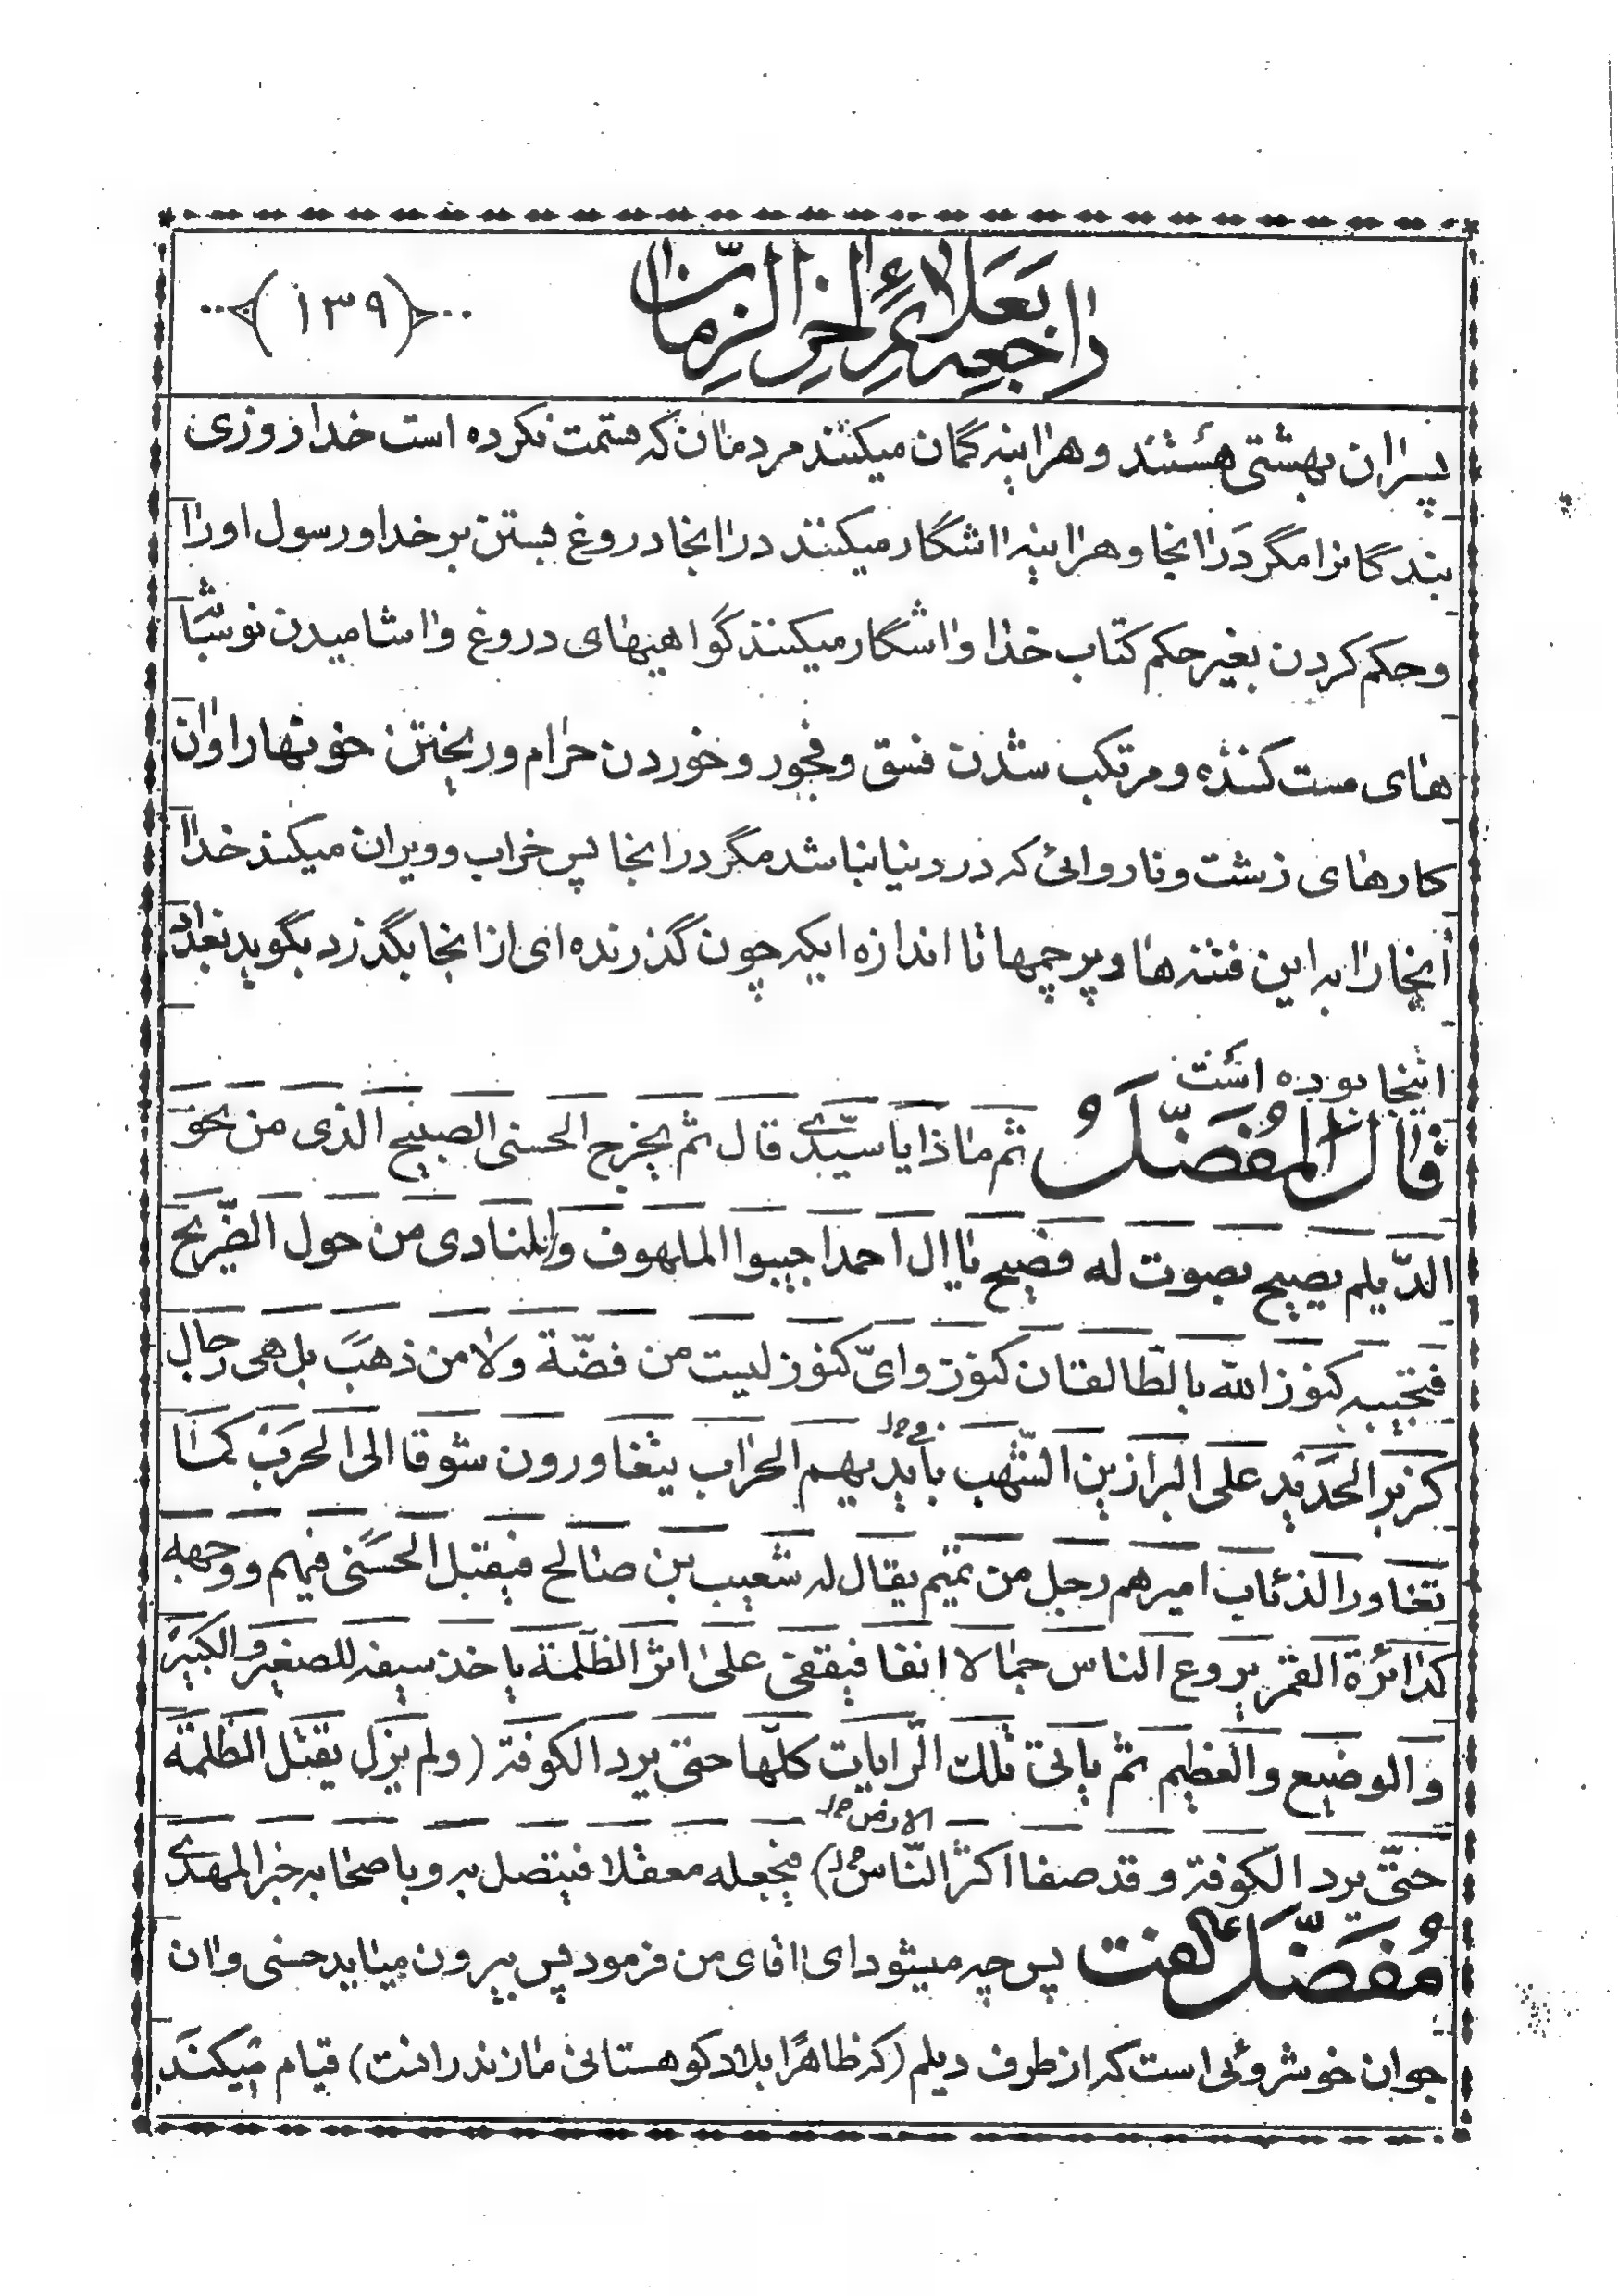 راجعه بعلائم اخر الزمان
(۱۳۹)
پسران بهشتی هستند و هراینه گمان میکنند مردمان که قسمت نکرده است خدا روزی
بندگانرا مگر در انجا و هراینه اشگار میکنند در انجا دروغ بستن بر خدا و رسول او را
و حکم کردن بغیر حکم کتاب خدا و اشگار میکنند گواهیهای دروغ و اشامیدن نوشابه
های مست کننده و مرتکب شدن فسق و فجور و خوردن حرام و ریختن خونها را و ان
کارهای زشت و ناروائی که در دنیا نباشد مگر در انجا پس خراب و ویران میکند خدا
انجا را به این فتنه ها و پرچمها تا اندازه ایکه چون گذرنده ای از انجا بگذرد بگوید بغداد
اینجا بوده است
قال المفضل ثم ماذا یا سیدی قال ثم یخرج الحسنی الصبیح الذی من نحو
الدیلم یصیح بصوت له فصیح یا ال احمد اجیبوا الملهوف والمنادی من حول الضریح
فتجیبه کنوز الله بالطالقان کنوز وای کنوز لیست من فضة ولا من ذهب بل هی رجال
کزبر الحدید علی البراذین الشهب بایدیهم الحراب یتغاورون شوقا الی الحرب کما
تتغاور الذئاب امیرهم رجل من تمیم یقال له شعیب بن صالح فیقبل الحسنی فیهم و وجهه
کدائرة القمر یروع الناس جمالا انقا فیقفی علی اثر الظلمة یاخذ سیفه للصغیر والکبیر
والوضیع والعظیم ثم یاتی تلک الرایات کلها حتی یرد الکوفة (ولم یزل یقتل الظلمة
الارض خ‌ل
حتی یرد الکوفة و قد صفا اکثر الناس) فیجعله معقلا فیتصل به و باصحابه خبر المهدی
مفضل گفت پس چه میشود ای اقای من فرمود پس بیرون میاید حسنی و ان
جوان خوشروئی است که از طرف دیلم (که ظاهرا بلاد کوهستانی مازندرانت) قیام میکند